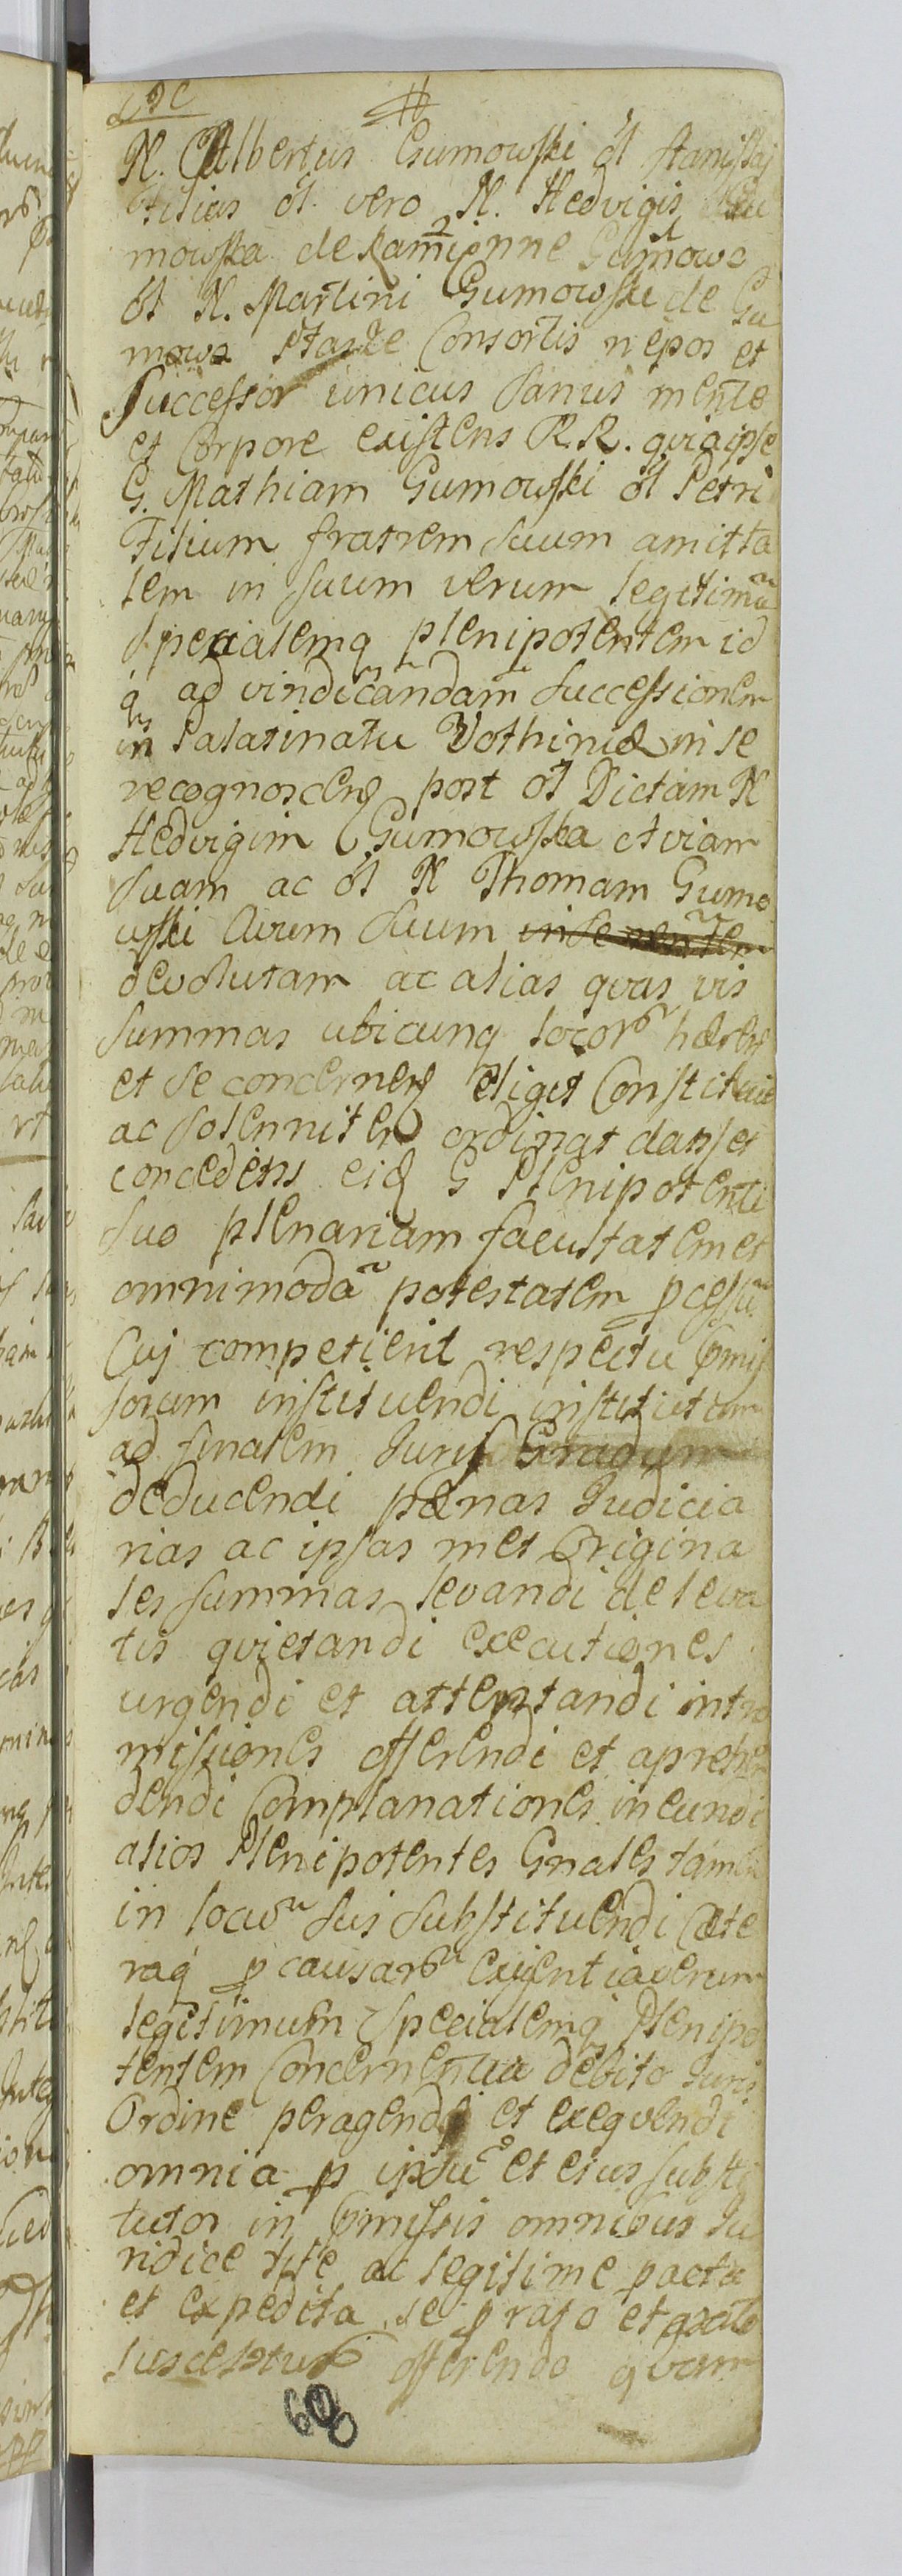 N. Albertus Gumowski ol Stanislaj
Filius ol. vero N. Hedvigis Gu
mowska de Kamienne Gumowo
ol N. Martini Gumowski de Gu
mowo Stare Consortis nepos et
Successor unicus sanus mente
et Corpore existens RR. quia ipse
G. Mathiam Gumowski ol Petri
Filium fratrem suum amitta
lem in suum verum legitimū
specialemq plenipotentem id
q ad vindicandam successionem
in Palatinatu Volhiniæ in se
recognoscen post ol Dictam N
Hedvigim Gumowska aviam
suam ac ol N Thomam Gumo
wski Avum suum
devolutam ac alias quas vis
summas ubicunq locorū hæren
et se concernen eligit Constituit
ac solenniter ordinat dans et
concedens eid G Plenipotenti
suo plenariam facultatem et
omnimodā potestatem pcessū
Cuj competierit respectu pmis
sorum instituendi institutum
ad finalem Juris Gradum
deducendi pænas Judicia
rias ac ipsas met Origina
les summas levandi de leva
tis quietandi executiones
urgendi et attentandi intro
missiones offerendi et aprehen
dendi Complanationes ineundi
alios Plenipotentes Gnales tamen
in locū sui substituendi Cæte
raq p causarū exigentia verum
legitimum specialemq Plenipo
tentem Concernentia debito Juris
Ordine peragendi et exequendi
omnia p ipsū et ejus substi
tutos in pmissis omnibus Ju
ridice rite ac legitime pacta
et expedita se p rato et grato
suscepturū offerendo quam
600